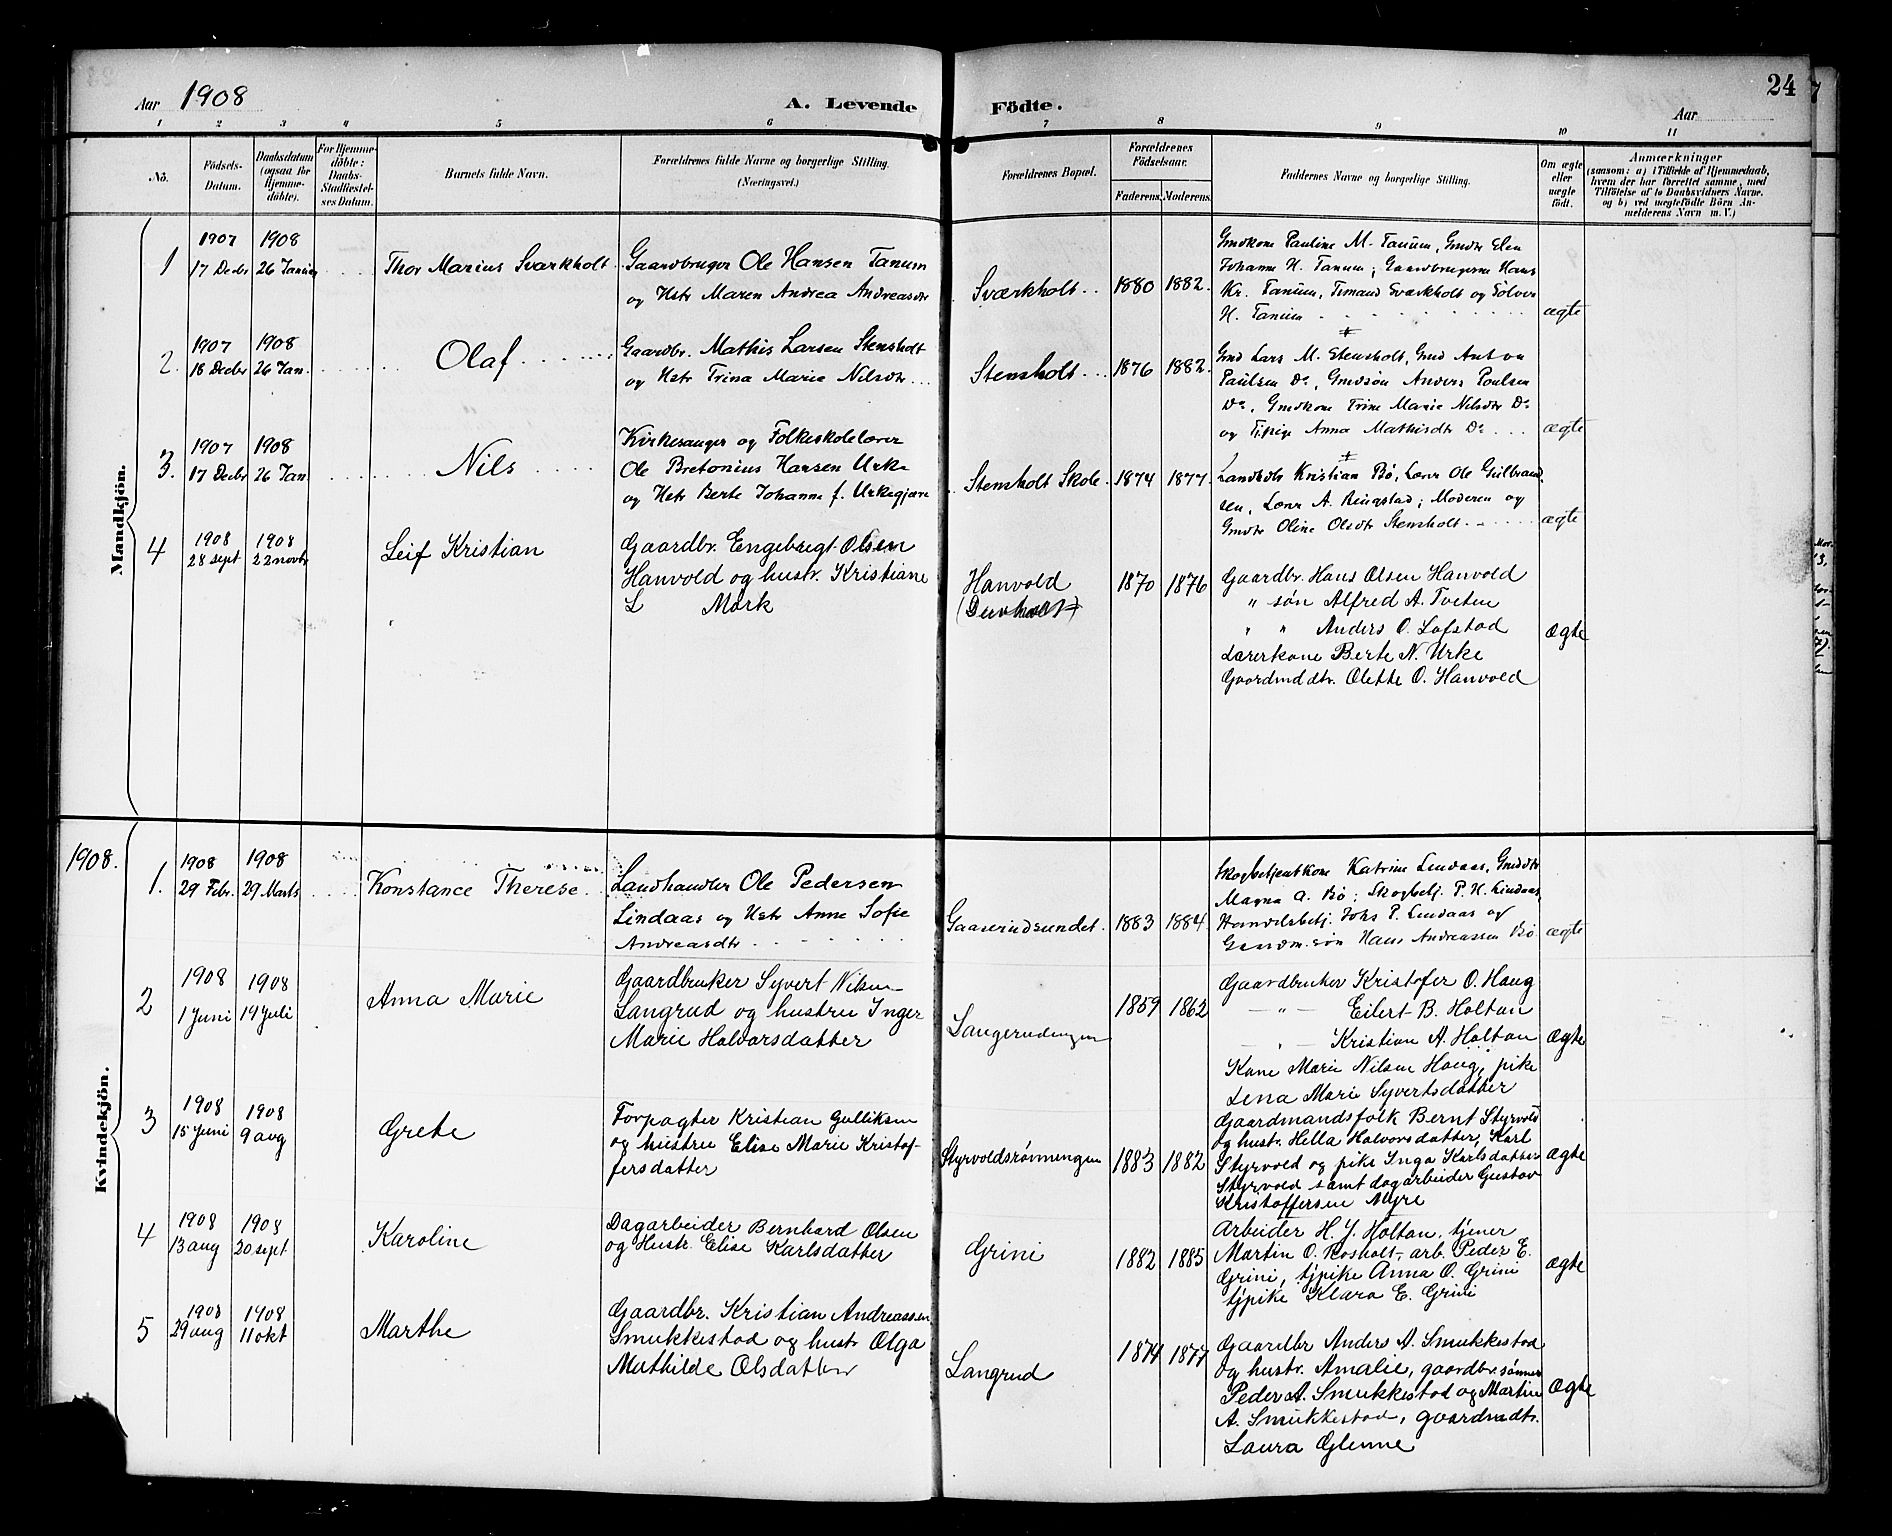 Aar 1908
A. Levende
Födte.
Aar
24
1 2 3 4 5 6 7 8 9 10 11
No.
Födsels-
Datum.
Daabsdatum
(ogsaa for
Hjemme-
döbte).
For Hjemme-
döbte:
Daabs-
Stadfæstel-
ses Datum.
Barnets fulde Navn.
Forældrenes fulde Navne og borgerlige Stilling.
(Næringsvei.)
Forældrenes Bopæl.
Forældrenes
Födselsaar.
Faderens. Moderens.
Faddernes Navne og borgerlige Stilling.
Om ægte
eller
uægte
födt.
Anmærkninger
(saasom: a) i Tilfælde af Hjemmedaab,
hvem der har forrettet samme, med
Tilföielse af to Daabsvidners Navne.
og b) ved uægtefödte Börn An-
melderens Navn m. V.)
Mandkjön.
1
1907
17 Decbr
1908
26 Januar
Thor Marius Sværkholt
Gaardbruger Ole Hansen Tanum
og Hstr Maren Andrea Andreasdtr
Sværkholt
1880 1882.
Gmdkone Pauline M. Tanum, Gmdtr Elen
Johanne H. Tanum; Gaardbrugerne Hans
Kr. Tanum, Sværkholt og Sølver
H. Tanum
ægte
2.
1907
18 Decbr
1908
26 Jan.
Olaf
Gaardbr. Mathis Larsen Stensholt
og Hstr Trina Marie Nilsdtr
Stensholt
1876 1882.
Gmd Lars M. Stensholt, Gmd Anton
Paulsen Do, Gmdsøn Anders Poulsen
Do, Gmdkone Trine Marie Nilsdtr Do
og Tjpige Anna Mathisdtr Do
ægte
3.
1907
17 Decbr
1908
26 Jan
Nils
Kirkesanger og Folkeskolelærer
Ole Bretonius Hansen Urke
og Hstr Berte Johanne f. Urkegjære
Stensholt Skole
1874 1877.
Landhdlr Kristian Bø, Lærer Ole Gulbrand-
sen, Lærer A. Ringstad; Moderen og
Gmdtr Oline Olsdtr Stensholt
ægte
4
1908
28 sept
1908
22 novbr
Leif Kristian
Gaardbr. Engebrigt Olsen
Hanvold og hustr. Kristiane
L Mørk
Hanvold
1870 1876
Gaardbr. Hans Olsen Hanvold
" søn Alfred A. Tveten
" " Anders O. Lofstad
Lærerkone Berte N. Urke
Gaardmd dtr. Olette O. Hanvold
Ægte
1908.
Kvindekjön.
1.
1908
29 Febr.
1908
29 Marts
Konstance Therese
Landhandler Ole Pedersen
Lindaas og Hstr Anne Sofie
Andreasdtr
Gaaserudsundet
1883 1884.
Skogbetjentkone Katrine Lindaas, Gmddtr
Magna A. Bø; Skogbetj. P. H. Lindaas,
Handelsbetj. Johs P. Lindaas og
Gaardm. søn Hans Andreassen Bø
ægte
2
1908
1 Juni
1908
19 Juli
Anna Marie
Gaardbruker Syvert Nilsen
Langrud og hustru Inger
Marie Halvorsdatter
Langerudengen
1859 1862
Gaardbruker Kristofer O. Haug
— " — Eilert B. Holtan
— " — Kristian A. Holtan
Kone Marie Nilsen Haug, pike
Lena Marie Syvertsdatter
Ægte
3
1908
15 Juni
1908
9 aug
Grete
Forpagter Kristian Gulliksen
og hustru Elise Marie Kristof-
fersdatter
Styrvoldsrønningen
1883 1882
Gaardmandsfolk Bernt Styrvold
og hustr. Hella Halvorsdatter, Karl
Styrvold og pike Inga Karlsdatter
Styrvold samt dagarbeider Gustav
Kristoffersen Myre
Ægte
4
1908
13 aug
1908
20 sept
Karoline
Dagarbeider Bernhard Olsen
og Hustr. Elise Karlsdatter
Grini
1882 1885
Arbeider H. J. Holtan, tjener
Martin O. Rosholt, arb. Peder E.
Grini, tjpike Anna O. Grini
tjpike Klara E. Grini
Ægte
5
1908
29 aug
1908
11 okt
Marthe
Gaardbr. Kristian Andreassen
Smukkestad og hustr Olga
Mathilde Olsdatter
Langrud
1874 1877
Gaardbr Anders A. Smukkestad
og hustr. Amalie, gaardbr. sønner
Peder A. Smukkestad og Martin
A. Smukkestad, gaardmdtr.
Laura Glenne
Ægte